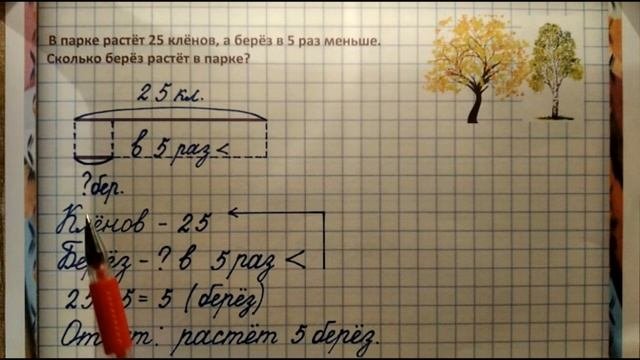 В парке растёт 25 клёнов, а берёз в 5 раз меньше.
Сколько берёз растёт в парке?
25 кл.
в 5 раз <
? бер.
Клёнов - 25
Берёз - ? в 5 раз <
5 = 5 (берёз)
растёт 5 берёз.